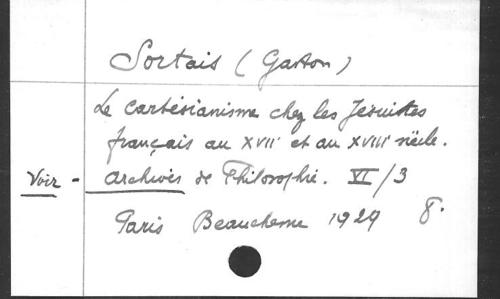 Sortais (Gaston)
Le cartésianisme chez les Jésuites
français au XVIIe et au XVIIIe siècle.
Voir - Archives de Philosophie. VI/3
Paris Beauchesne 1929 8°.